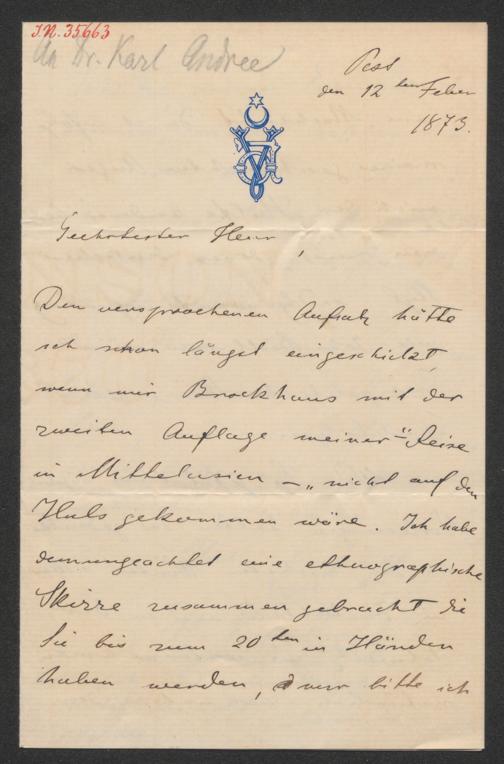 I.N. 35663
An Dr. Karl Andree
Pest
den 12 ten Feber
1873.
Geehrtester Herr,
Den versprochenen Aufsatz hätte
ich schon längst eingeschickt,
wenn mir Brockhaus mit der
zweiten Auflage meiner "Reise
in Mittelasien –" nicht auf den
Hals gekommen wäre. Ich habe
demungeachtet eine ethnographische
Skizze zusammen gebracht die
Sie bis zum 20 ten in Händen
haben werden, nur bitte ich